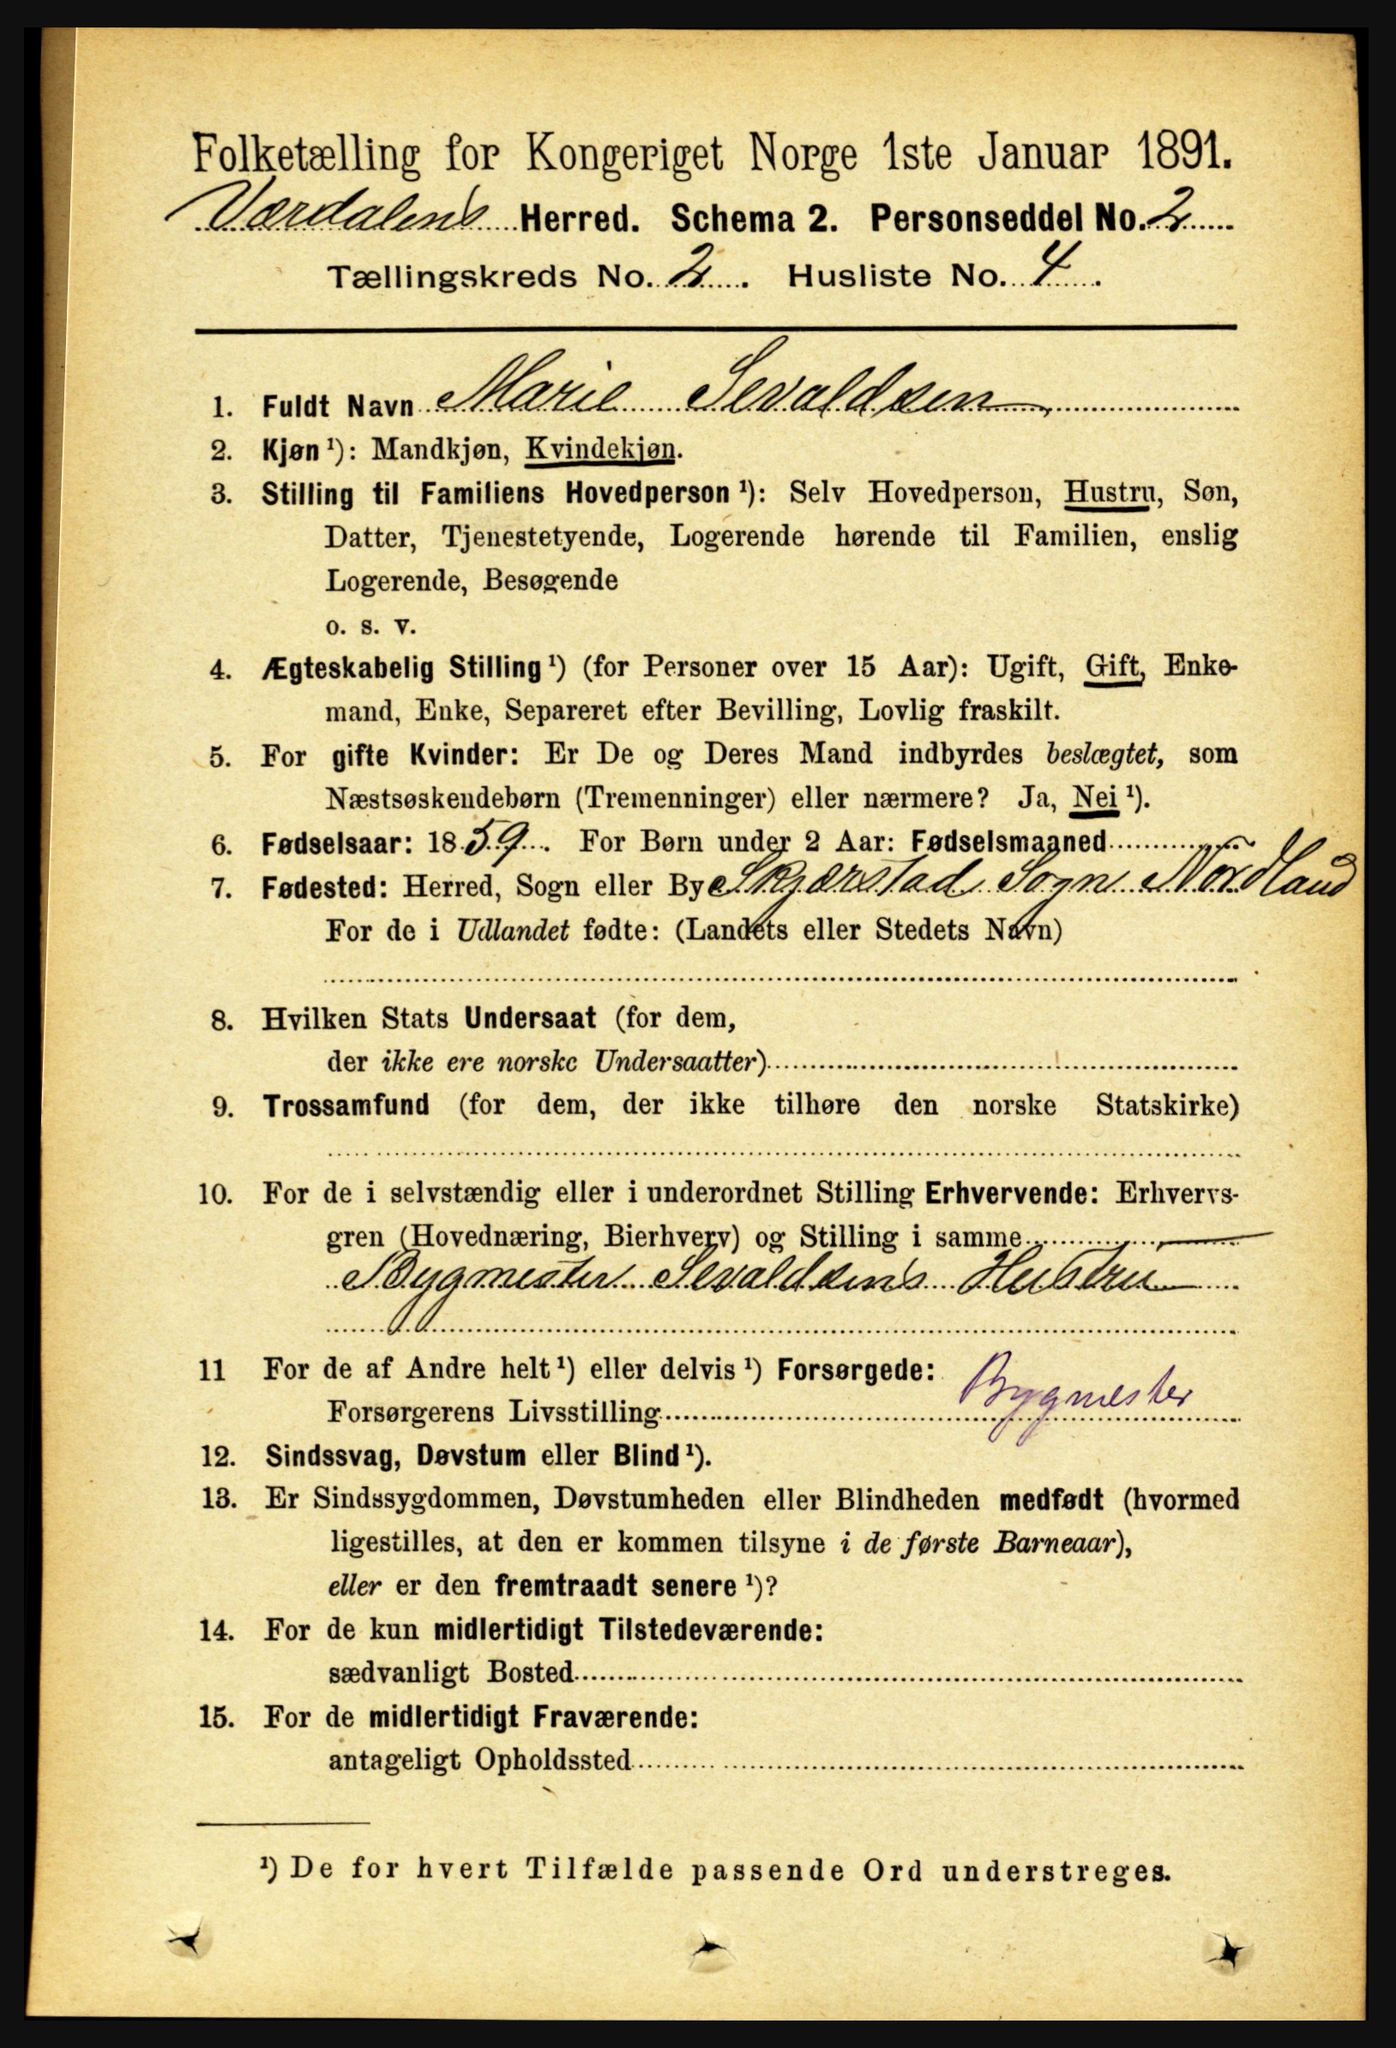 Folketælling for Kongeriget Norge 1ste Januar 1891.
Værdalens Herred. Schema 2. Personseddel No. 2
Tællingskreds No. 2. Husliste No. 4.
1. Fuldt Navn Marie Sevaldsen
2. Kjøn ¹): Mandkjøn, Kvindekjøn.
3. Stilling til Familiens Hovedperson ¹): Selv Hovedperson, Hustru, Søn,
Datter, Tjenestetyende, Logerende hørende til Familien, enslig
Logerende, Besøgende
o. s. v.
4. Ægteskabelig Stilling ¹) (for Personer over 15 Aar): Ugift, Gift, Enke-
mand, Enke, Separeret efter Bevilling, Lovlig fraskilt.
5. For gifte Kvinder: Er De og Deres Mand indbyrdes beslægtet, som
Næstsøskendebørn (Tremenninger) eller nærmere? Ja, Nei ¹).
6. Fødselsaar: 1859. For Børn under 2 Aar: Fødselsmaaned
7. Fødested: Herred, Sogn eller By Skjærstad Sogn Nordland
For de i Udlandet fødte: (Landets eller Stedets Navn)
8. Hvilken Stats Undersaat (for dem,
der ikke ere norske Undersaatter)
9. Trossamfund (for dem, der ikke tilhøre den norske Statskirke)
10. For de i selvstændig eller i underordnet Stilling Erhvervende: Erhvervs-
gren (Hovednæring, Bierhverv) og Stilling i samme
Bygmester Sevaldsens Hustru
11 For de af Andre helt ¹) eller delvis ¹) Forsørgede:
Forsørgerens Livsstilling Bygmester
12. Sindssvag, Døvstum eller Blind ¹).
13. Er Sindssygdommen, Døvstumheden eller Blindheden medfødt (hvormed
ligestilles, at den er kommen tilsyne i de første Barneaar),
eller er den fremtraadt senere ¹)?
14. For de kun midlertidigt Tilstedeværende:
sædvanligt Bosted
15. For de midlertidigt Fraværende:
antageligt Opholdssted
¹) De for hvert Tilfælde passende Ord understreges.